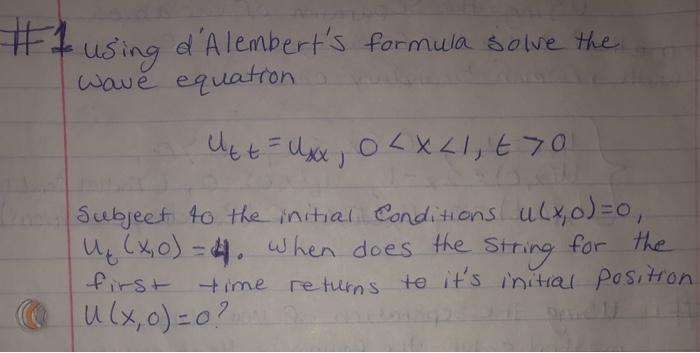 #1 using d'Alembert's formula solve the
wave equation
Utt = Uxx, 0 < x < 1, t > 0
Subject to the initial Conditions u(x,0)=0,
Ut(x,0) = 4. When does the string for the
first time returns to it's initial position
U(x,0)=0?